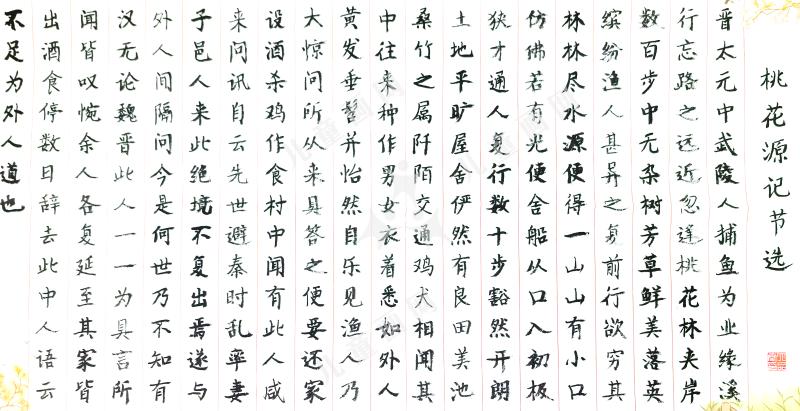 桃花源记节选
晋太元中武陵人捕鱼为业缘溪
行忘路之远近忽逢桃花林夹岸
数百步中无杂树芳草鲜美落英
缤纷渔人甚异之复前行欲穷其
林林尽水源便得一山山有小口
仿佛若有光便舍船从口入初极
狭才通人复行数十步豁然开朗
土地平旷屋舍俨然有良田美池
桑竹之属阡陌交通鸡犬相闻其
中往来种作男女衣着悉如外人
黄发垂髫并怡然自乐见渔人乃
大惊问所从来具答之便要还家
设酒杀鸡作食村中闻有此人咸
来问讯自云先世避秦时乱率妻
子邑人来此绝境不复出焉遂与
外人间隔问今是何世乃不知有
汉无论魏晋此人一一为具言所
闻皆叹惋余人各复延至其家皆
出酒食停数日辞去此中人语云
不足为外人道也